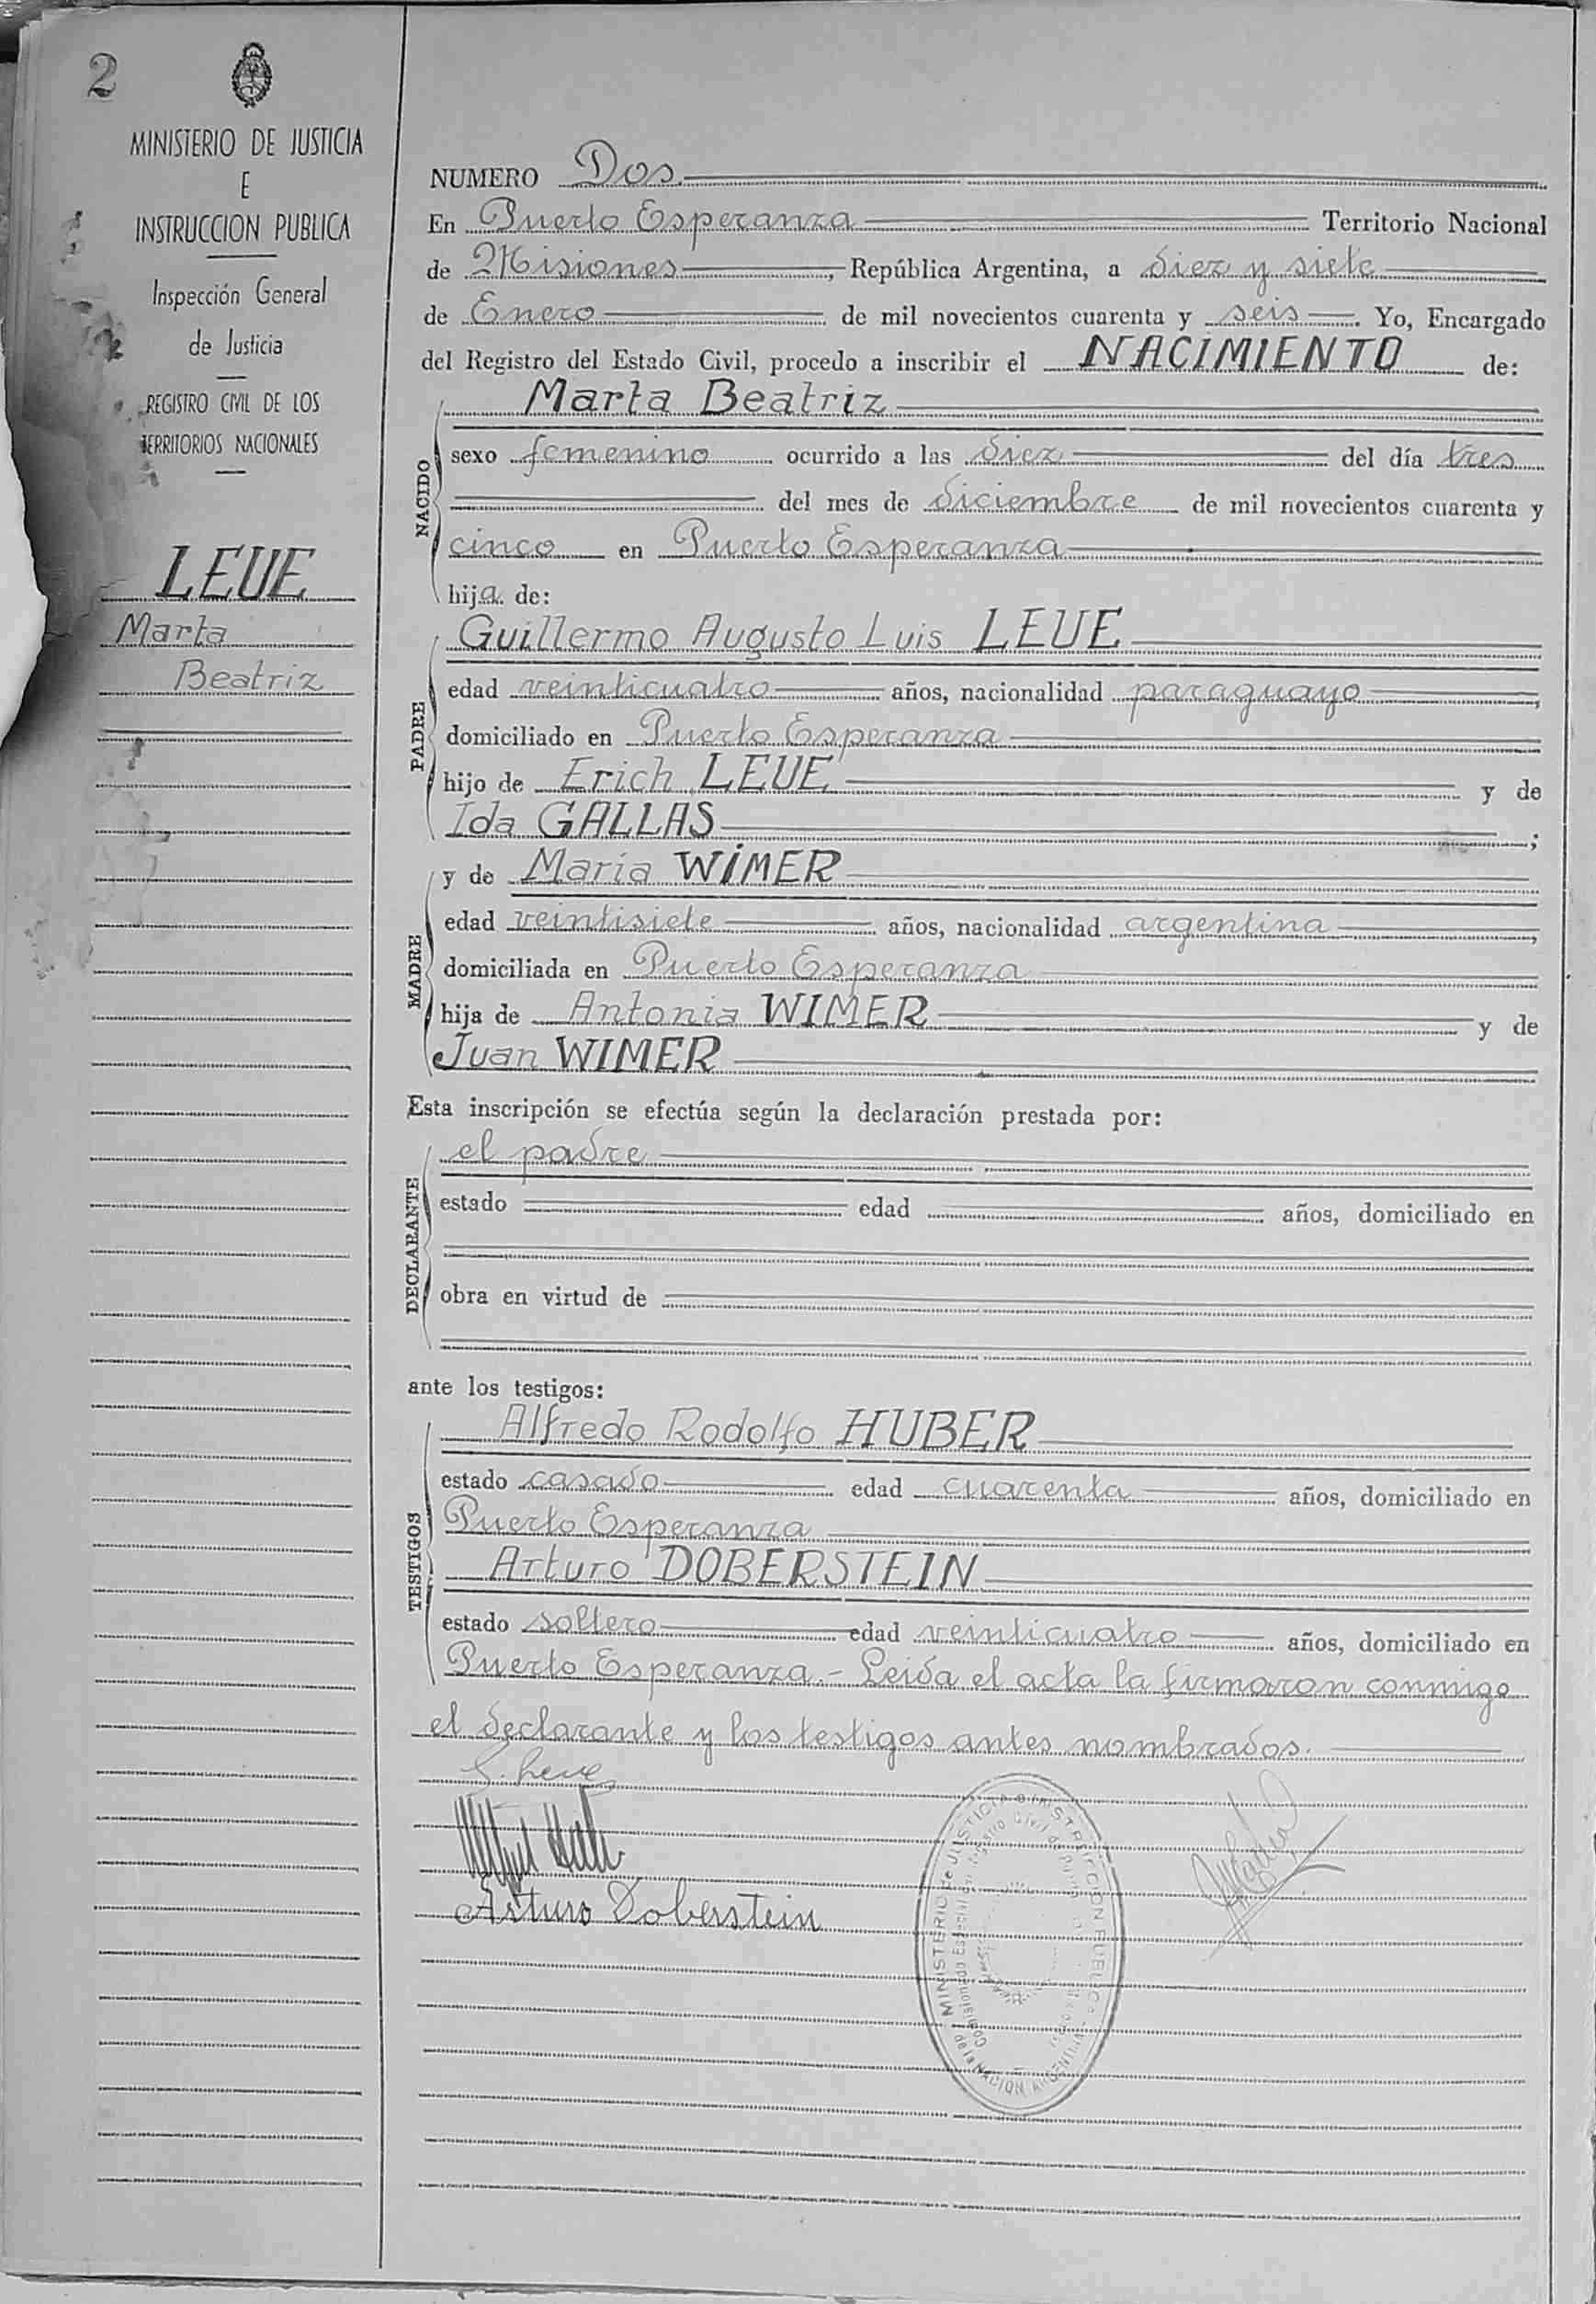 2
MINISTERIO DE JUSTICIA
E
INSTRUCCION PUBLICA
Inspección General
de Justicia
REGISTRO CIVIL DE LOS
TERRITORIOS NACIONALES
LEUE
Marta
Beatriz
NUMERO Dos
En Puerto Esperanza Territorio Nacional
de Misiones, República Argentina, a diez y siete
de Enero de mil novecientos cuarenta y seis. Yo, Encargado
del Registro del Estado Civil, procedo a inscribir el NACIMIENTO de:
Marta Beatriz
NACIDO
sexo femenino ocurrido a las diez del día tres
del mes de diciembre de mil novecientos cuarenta y
cinco en Puerto Esperanza
hija de:
Guillermo Augusto Luis LEUE
PADRE
edad veinticuatro años, nacionalidad paraguayo,
domiciliado en Puerto Esperanza
hijo de Erich LEUE y de
Ida GALLAS;
y de María WIMER
MADRE
edad veintisiete años, nacionalidad argentina,
domiciliada en Puerto Esperanza
hija de Antonia WIMER y de
Juan WIMER
Esta inscripción se efectúa según la declaración prestada por:
el padre
DECLARANTE
estado edad años, domiciliado en
obra en virtud de
ante los testigos:
Alfredo Rodolfo HUBER
TESTIGOS
estado casado edad cuarenta años, domiciliado en
Puerto Esperanza
Arturo DOBERSTEIN
estado soltero edad veinticuatro años, domiciliado en
Puerto Esperanza.- Leida el acta la firmaron conmigo
el declarante y los testigos antes nombrados.
G. Leue
Arturo Doberstein
MINISTERIO DE JUSTICIA e INSTRUCCION PUBLICA
NACION ARGENTINA